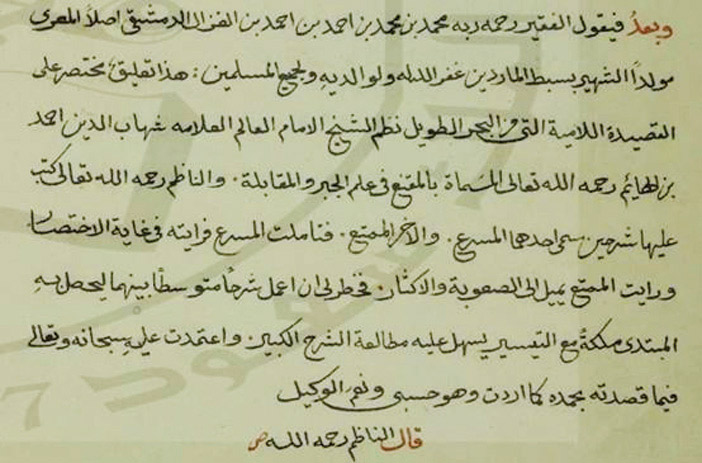 وبعد فيقول الفقير رحمه ربه محمد بن محمد بن احمد بن احمد بن الغزال الدمشقي اصلا المصري
مولداً الشهير بسبط الماردين غفر الله له ولوالديه ولجميع المسلمين : هذا تعليق مختصر على
القصيدة اللامية التي من البحر الطويل نظم الشيخ الامام العالم العلامه شهاب الدين احمد
بن الهائم رحمه الله تعالى المسماة بالمقنع في علم الجبر والمقابلة . والناظم رحمه الله تعالى كتب
عليها شرحين سمى احدهما المسرع . والآخر الممتع . فتاملت المسرع فرايته في غاية الاختصار
ورايت الممتع يميل الى الصعوبة والاكثار . فخطر لي ان اعمل شرحاً متوسطاً بينهما ليحصل به
المبتدى ملكةٌ مع التيسير يسهل عليه مطالعة الشرح الكبير . واعتمدت عليه سبحانه وتعالى
فيما قصدته بحمده كما اردت وهو حسبى ونعم الوكيل
قال الناظم رحمه الله ص